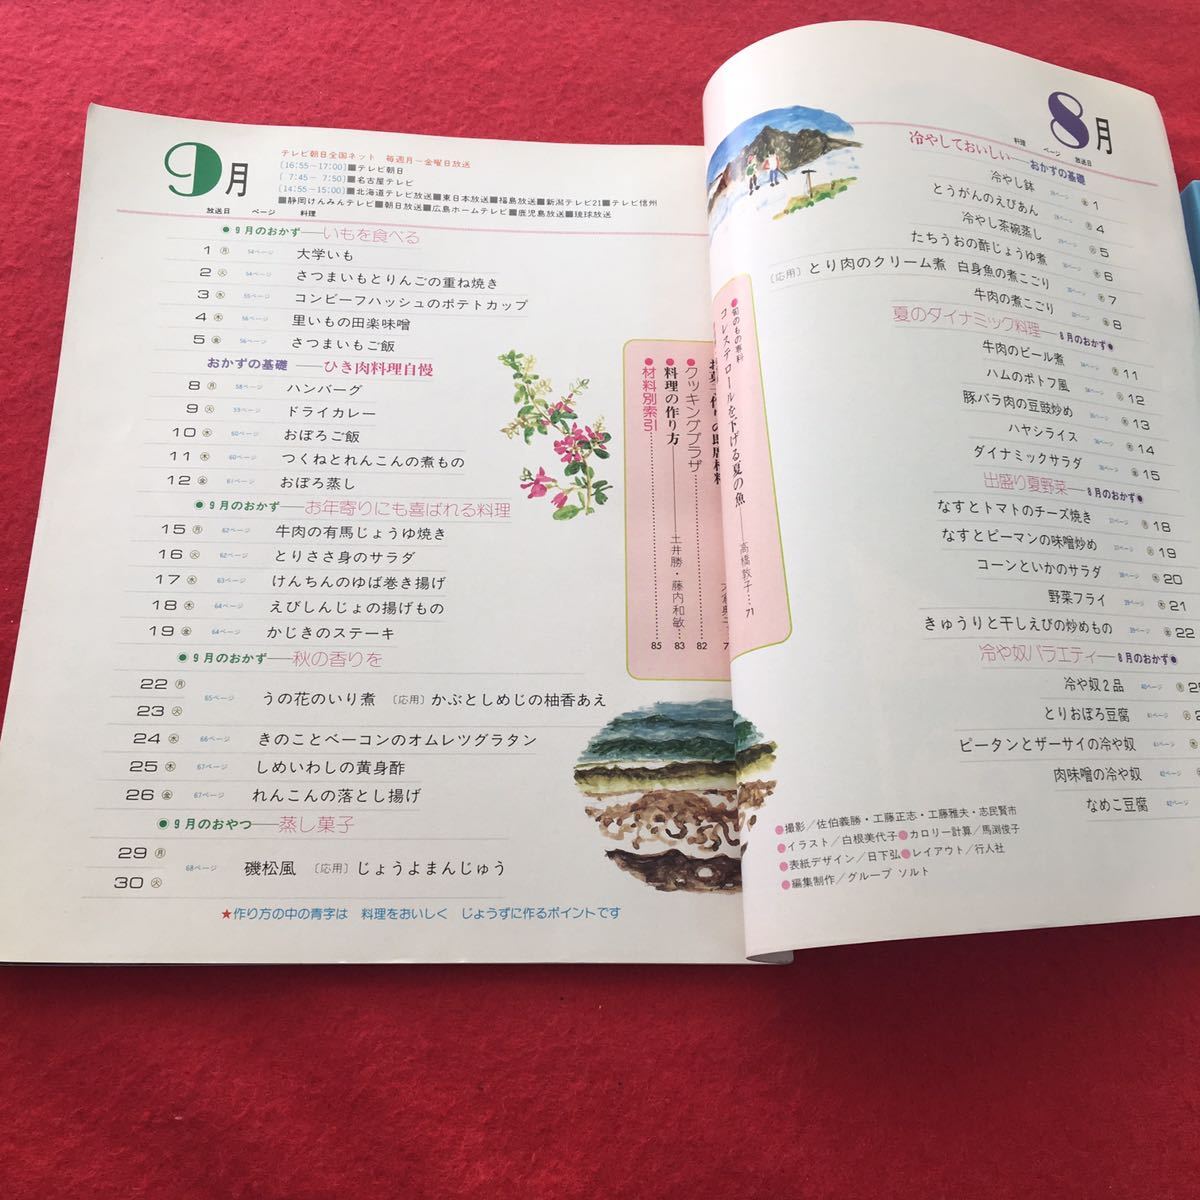 9月
テレビ朝日全国ネット 毎週月―金曜日放送
[16:55―17:00]■テレビ朝日
[7:45―7:50]■名古屋テレビ
[14:55―15:00]■北海道テレビ放送■東日本放送■福島放送■新潟テレビ21■テレビ信州
■静岡けんみんテレビ■朝日放送■広島ホームテレビ■鹿児島放送■琉球放送
放送日 ページ 料理
●9月のおかず―いもを食べる
1 月 54ページ 大学いも
2 火 54ページ さつまいもとりんごの重ね焼き
3 水 55ページ コンビーフハッシュのポテトカップ
4 木 56ページ 里いもの田楽味噌
5 金 56ページ さつまいもご飯
おかずの基礎―ひき肉料理自慢
8 月 58ページ ハンバーグ
9 火 59ページ ドライカレー
10 水 60ページ おぼろご飯
11 木 60ページ つくねとれんこんの煮もの
12 金 61ページ おぼろ蒸し
●9月のおかず―お年寄りにも喜ばれる料理
15 月 62ページ 牛肉の有馬じょうゆ焼き
16 火 62ページ とりささ身のサラダ
17 水 63ページ けんちんのゆば巻き揚げ
18 木 64ページ えびしんじょの揚げもの
19 金 64ページ かじきのステーキ
●9月のおかず―秋の香りを
22 月
23 火 65ページ うの花のいり煮 〔応用〕かぶとしめじの柚香あえ
24 水 66ページ きのことベーコンのオムレツグラタン
25 木 67ページ しめいわしの黄身酢
26 金 67ページ れんこんの落とし揚げ
●9月のおやつ―蒸し菓子
29 月
30 火 68ページ 磯松風 〔応用〕じょうよまんじゅう
★作り方の中の青字は 料理をおいしく じょうずに作るポイントです
●旬のもの専科
コレステロールを下げる、夏の魚―高橋敦子…71
●クッキングプラザ……82
●料理の作り方―土井勝・藤内和敏…83
●材料別索引……85
8月
料理 ページ 放送日
冷やしておいしい―おかずの基礎
冷やし鉢 金 1
とうがんのえびあん 月 4
冷やし茶碗蒸し 火 5
たちうおの酢じょうゆ煮 水 6
〔応用〕とり肉のクリーム煮 白身魚の煮こごり 木 7
牛肉の煮こごり 金 8
夏のダイナミック料理―8月のおかず●
牛肉のビール煮 月 11
ハムのポトフ風 火 12
豚バラ肉の豆豉炒め 水 13
ハヤシライス 木 14
ダイナミックサラダ 金 15
出盛り夏野菜―8月のおかず●
なすとトマトのチーズ焼き 月 18
なすとピーマンの味噌炒め 火 19
コーンといかのサラダ 水 20
野菜フライ 木 21
きゅうりと干しえびの炒めもの 金 22
冷や奴バラエティ―8月のおかず●
冷や奴2品
とりおぼろ豆腐
ピータンとザーサイの冷や奴
肉味噌の冷や奴
なめこ豆腐
●撮影/佐伯義勝・工藤正志・工藤雅夫・志民賢市
●イラスト/白根美代子●カロリー計算/馬渕俊子
●表紙デザイン/日下弘●レイアウト/行人社
●編集制作/グループ ソルト